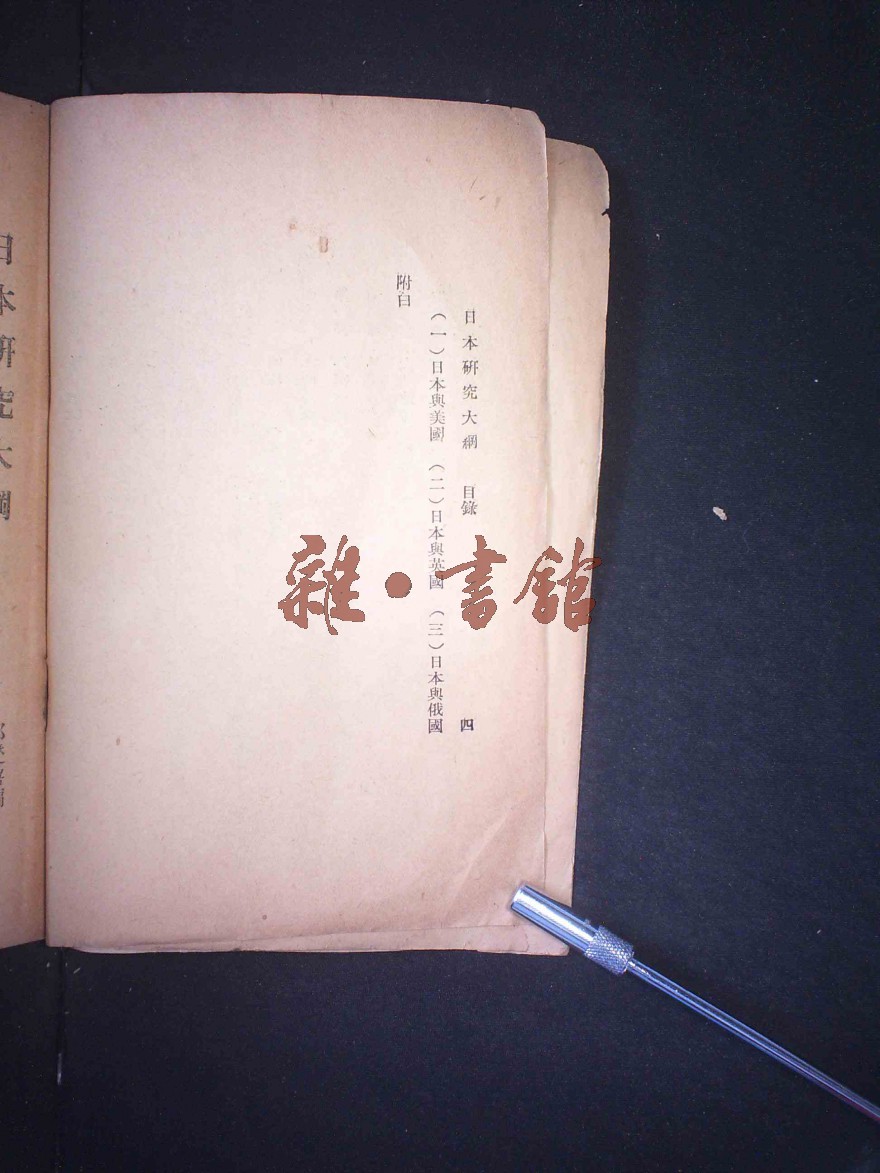 日本硏究大綱　目錄　四
（一）日本與美國　（二）日本與英國　（三）日本與俄國
附白
日本硏究大綱
雜·書館